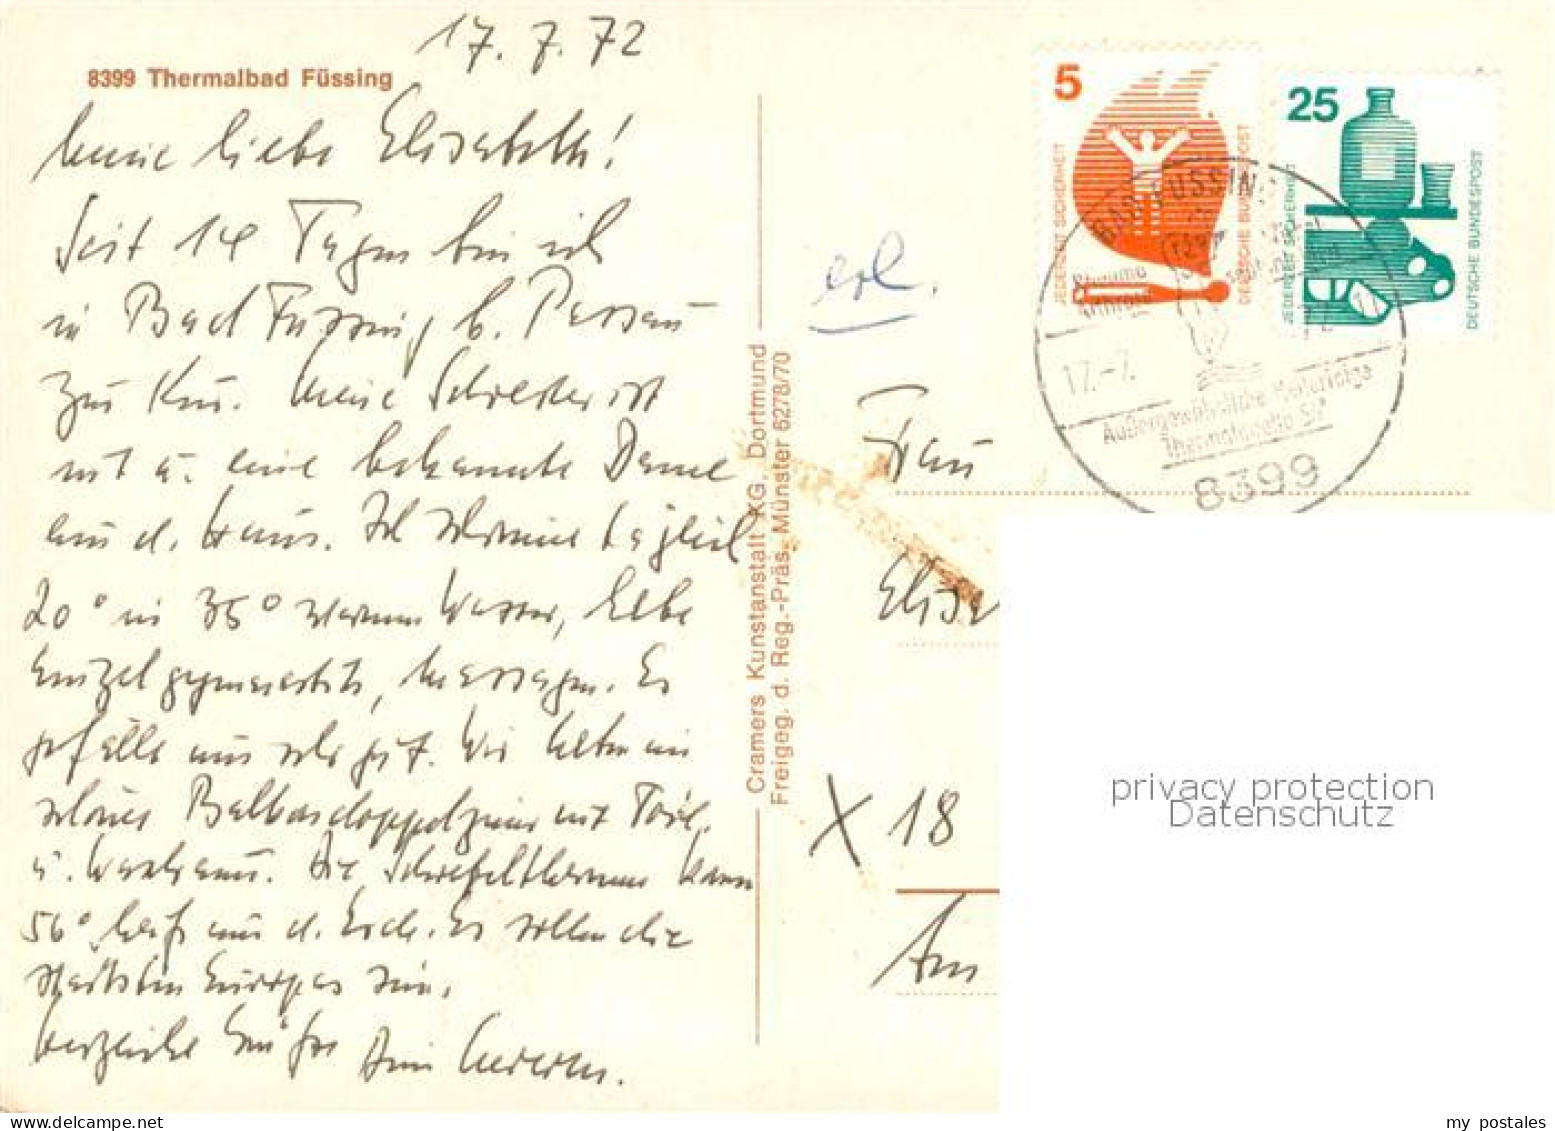 17. 7. 72
8399 Thermalbad Füssing
Meine liebe Elisabeth!
Seit 14 Tagen bin ich
in Bad Füssing b. Passau
zur Kur. Meine Schwester ist
mit u. eine bekannte Dame
aus d. Haus. Ich schwimme täglich
20° in 35° warmem Wasser, habe
Einzelgymnastik, Massagen. Es
gefällt uns sehr gut. Wir haben ein
schönes Balkondoppelzimmer mit Toil.
u. Waschraum. Die Schwefelthermen kamen
56° heiß aus d. Erde. Es sollen die
stärksten Europas sein.
Herzliche Grüße Deine
erl.
Cramers Kunstanstalt KG, Dortmund
Freigeg. d. Reg.-Präs. Münster 6278/70
5
JEDERZEIT SICHERHEIT
DEUTSCHE BUNDESPOST
25
JEDERZEIT SICHERHEIT
DEUTSCHE BUNDESPOST
BAD FÜSSING
Rheuma
Arthrose
17.-7.
Außergewöhnliche Heilerfolge
Thermalquelle 56°
8399
Frau
Elisa
X 18
Am
privacy protection
Datenschutz
my postales